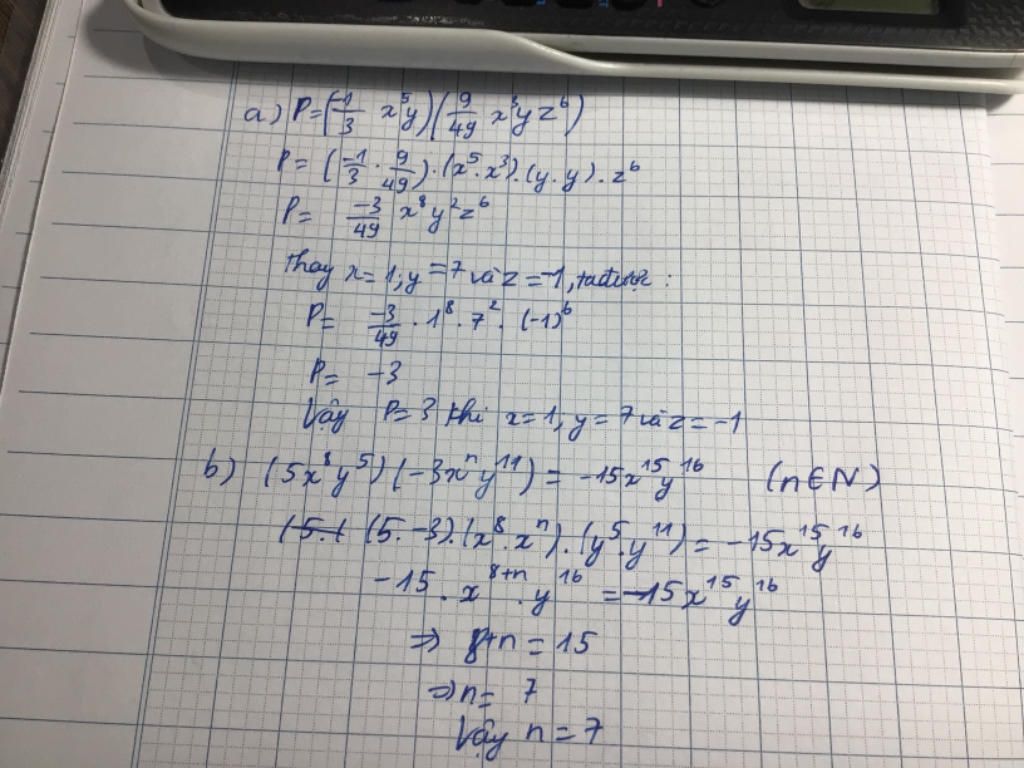 a) P = (-1/3 x⁵y)(9/49 x³yz⁶)
P = (-1/3 · 9/49) · (x⁵ · x³) · (y · y) · z⁶
P = -3/49 x⁸y²z⁶
thay x = 1; y = 7 và z = -1, ta được :
P = -3/49 · 1⁸ · 7² · (-1)⁶
P = -3
Vậy P = 3 khi x = 1, y = 7 và z = -1
b) (5x⁸y⁵)(-3xⁿy¹¹) = -15x¹⁵y¹⁶ (n ∈ N)
(5. -3) · (x⁸ · xⁿ) · (y⁵ · y¹¹) = -15x¹⁵y¹⁶
-15 · x⁸⁺ⁿ · y¹⁶ = -15x¹⁵y¹⁶
⇒ 8+n = 15
⇒ n = 7
Vậy n = 7